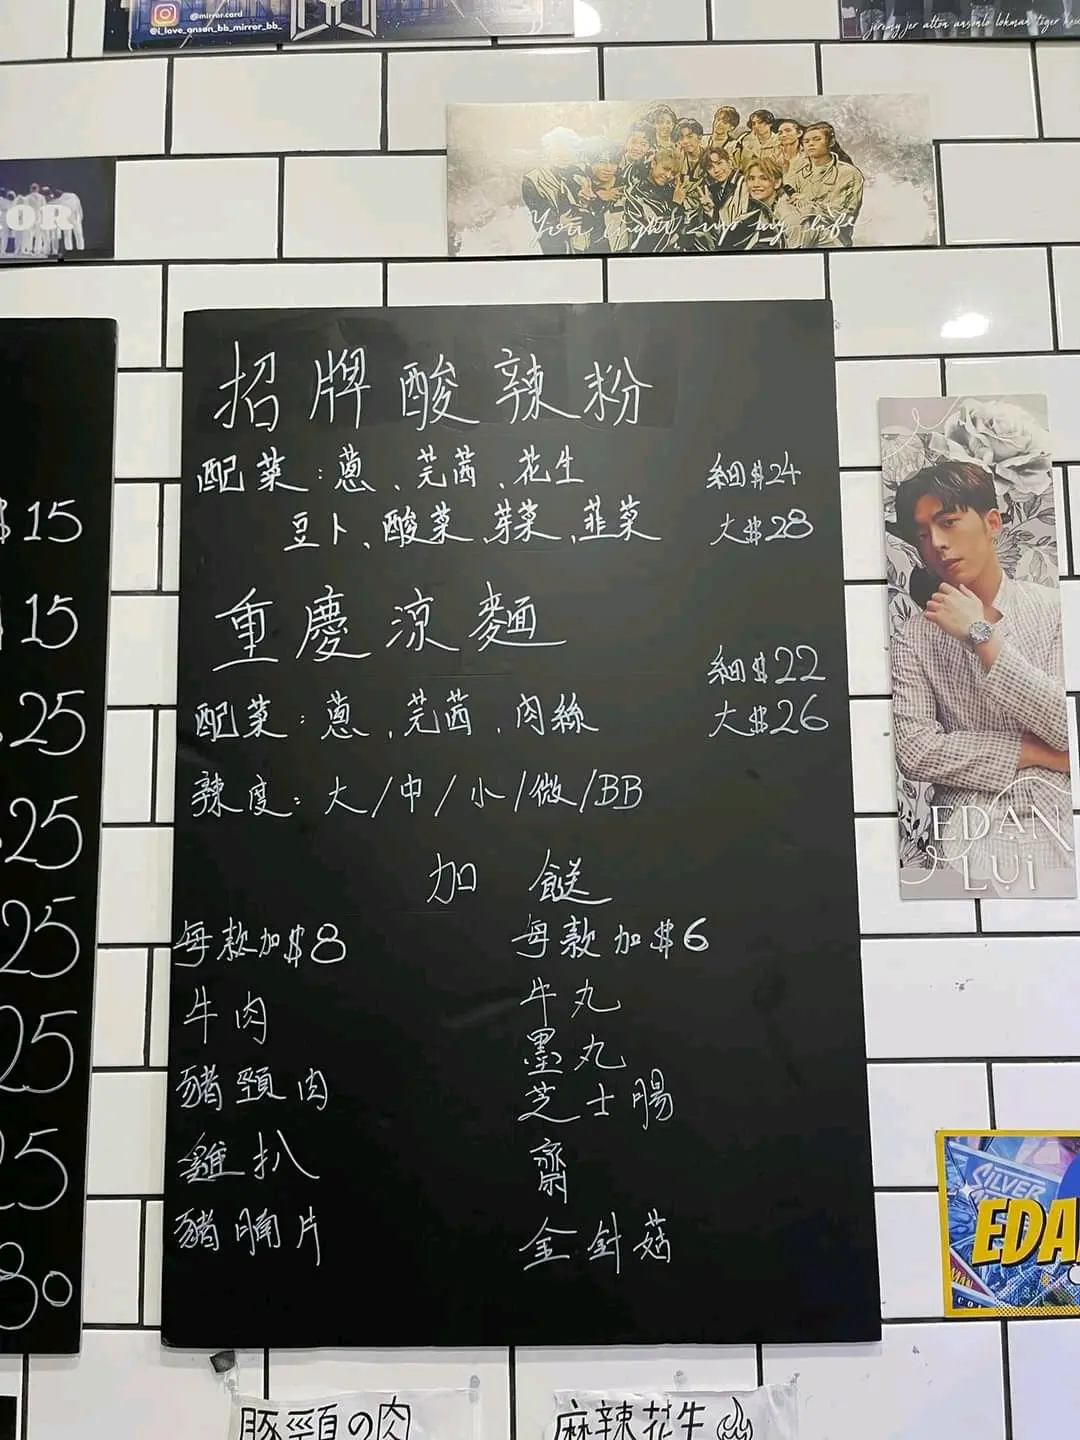 @mirror.card
@i_love_anson_bb_mirror_bb_
jeremy jer alton anson lo lokman tiger
OR
You light up my life
$15
15
25
25
25
25
25
80
招牌酸辣粉
配菜：蔥、芫茜、花生
細$24
豆卜、酸菜、芽菜、韮菜
大$28
重慶涼麵
細$22
配菜：蔥、芫茜、肉絲
大$26
辣度：大/中/小/微/BB
加餸
每款加$8
每款加$6
牛肉
牛丸
墨丸
豬頸肉
芝士腸
雞扒
齋
豬腩片
金針菇
EDAN
LUI
SILVER
EDA
豚頸の肉
麻辣花生